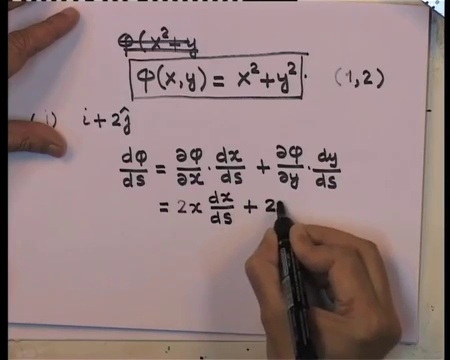 φ(x²+y
φ(x,y) = x²+y². (1,2)
i) i+2ĵ
dφ/ds = ∂φ/∂x · dx/ds + ∂φ/∂y · dy/ds
= 2x dx/ds + 2